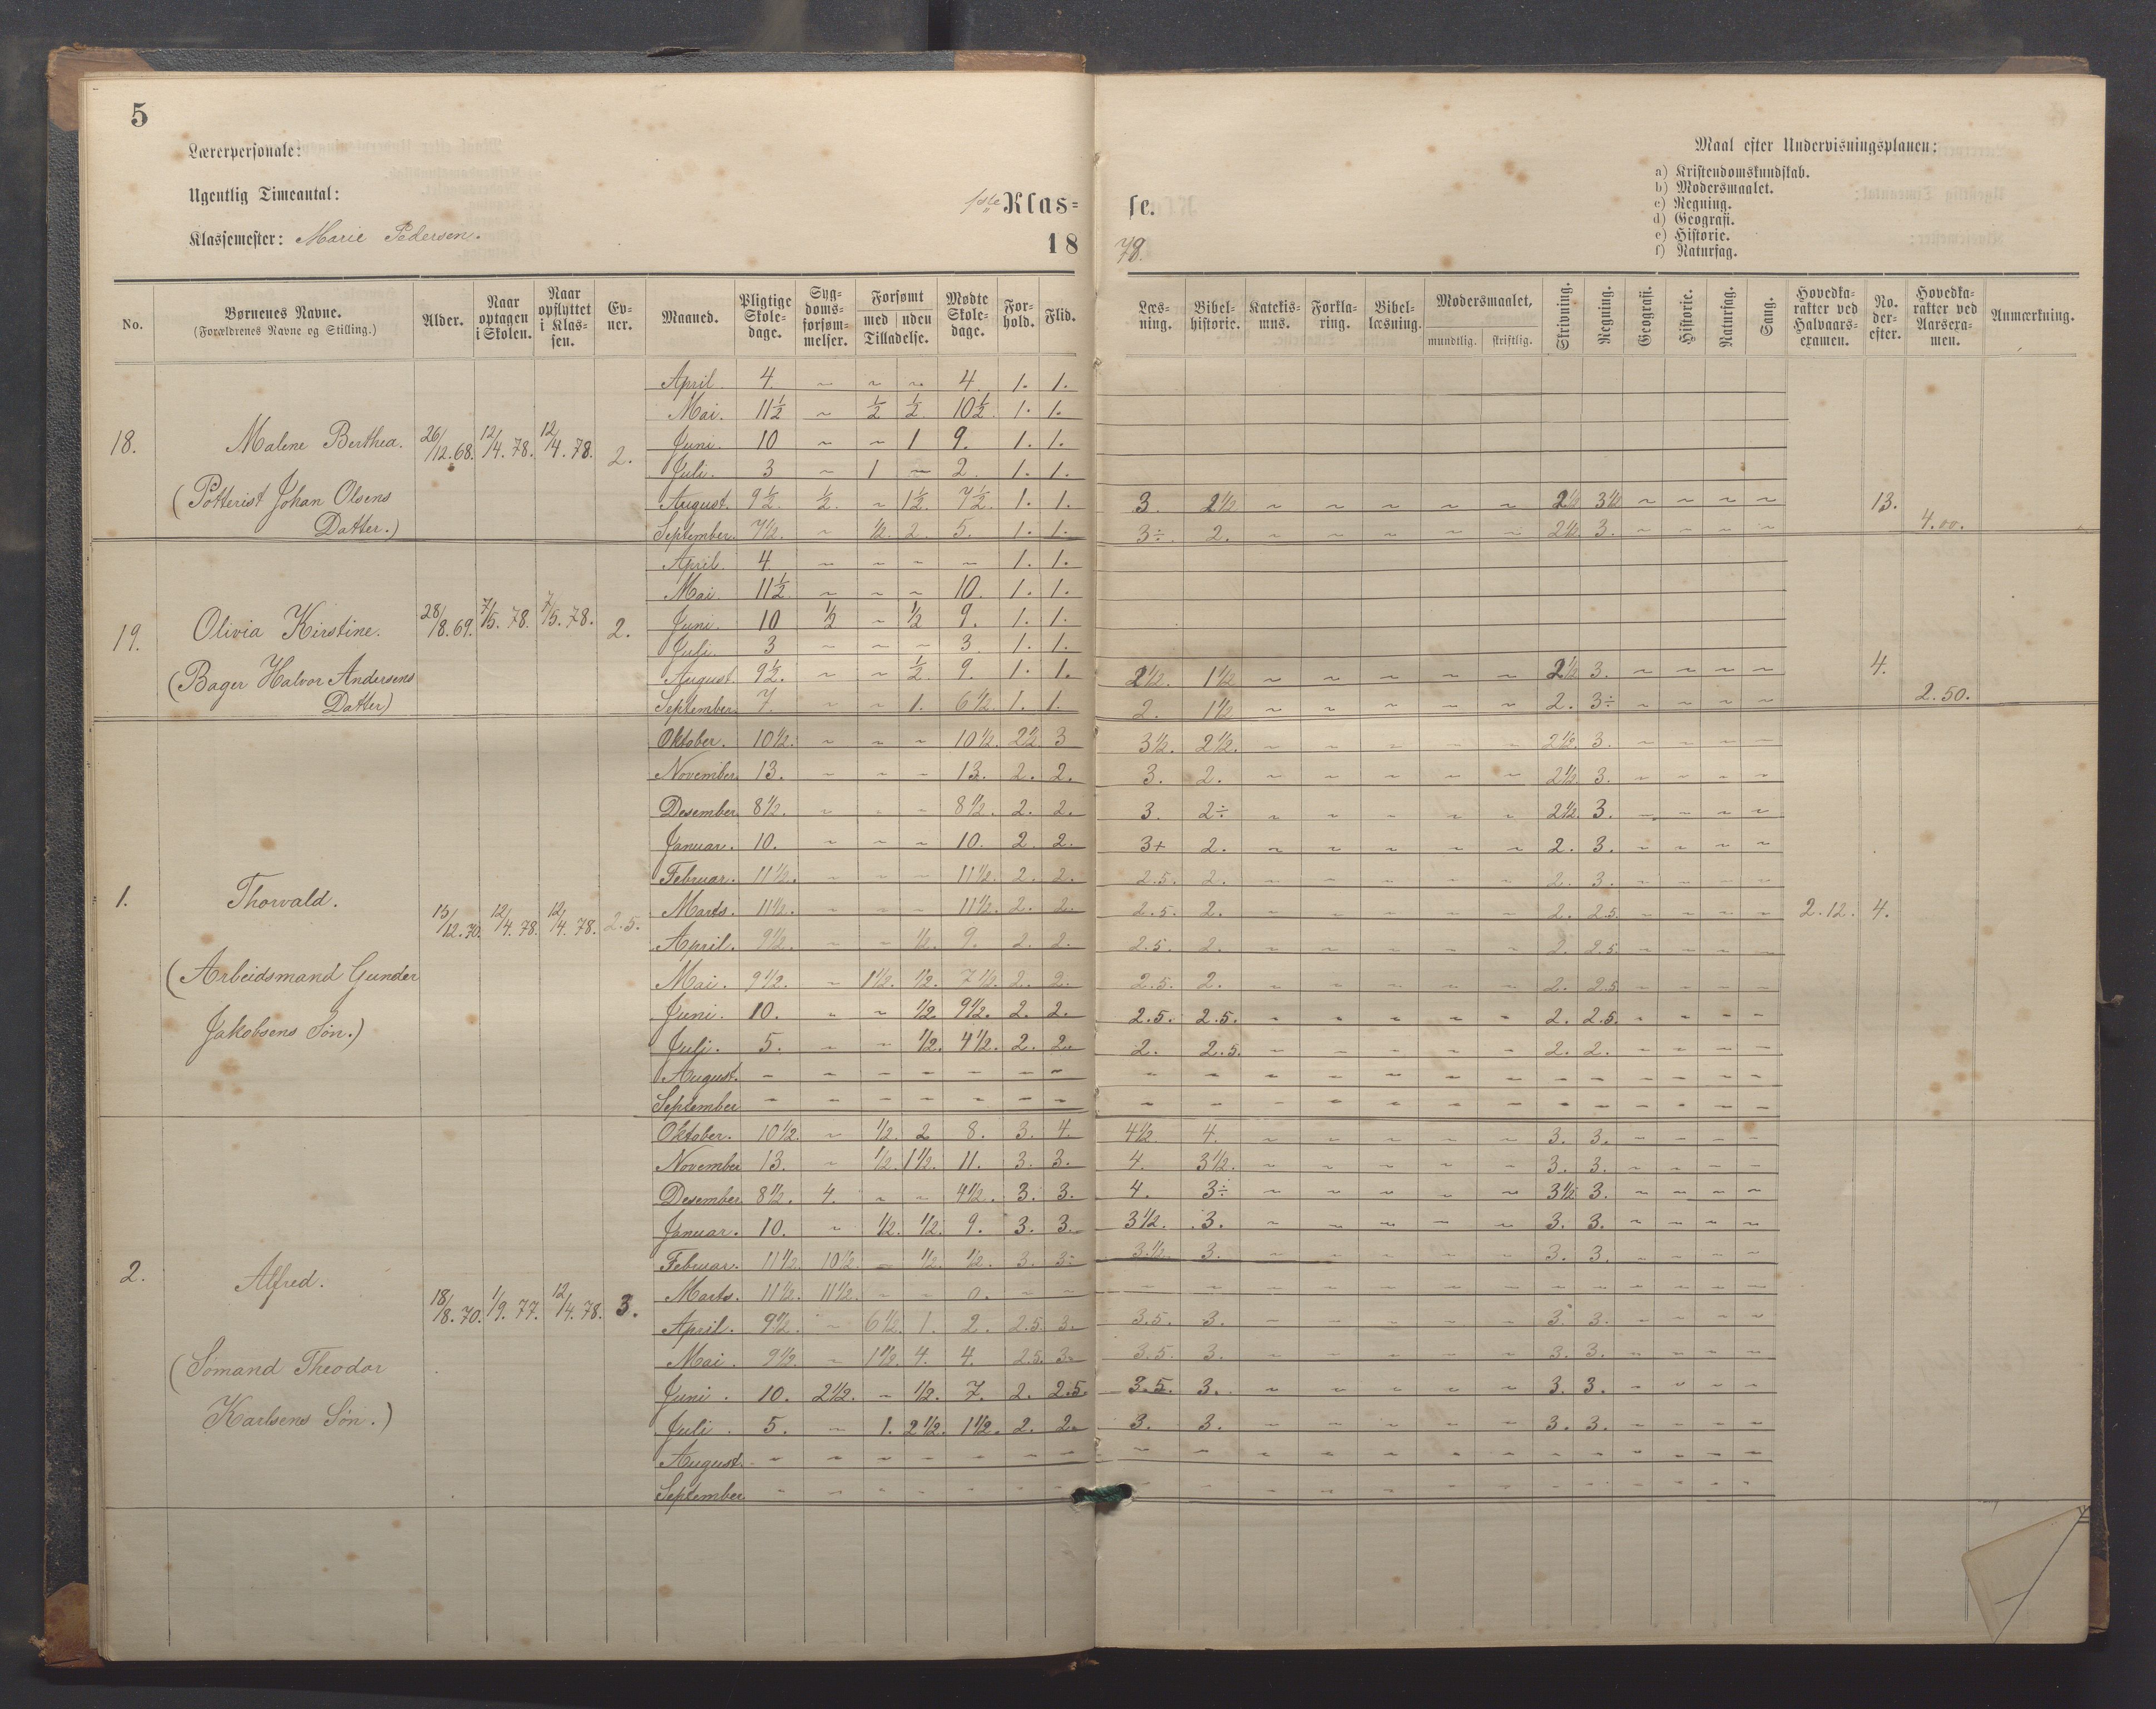 5
Lærerpersonale:
Ugentlig Timeantal:
Klassemester: Marie Pedersen.
1ste Klas=
18
se.
78.
Maal efter Undervisningsplanen:
a) Kristendomskundskab.
b) Modersmaalet.
c) Regning.
d) Geografi.
e) Historie.
f) Naturfag.
No. Børnenes Navne. (Forældrenes Navne og Stilling.) Alder. Naar optagen i Skolen. Naar opflyttet i Klassen. Evner. Maaned. Pligtige Skoledage. Sygdomsforsømmelser. Forsømt med | uden Tilladelse. Mødte Skoledage. Forhold. Flid. Læsning. Bibelhistorie. Katekismus. Forklaring. Bibellæsning. Modersmaalet, mundtlig. skriftlig. Skrivning. Regning. Geografi. Historie. Naturfag. Sang. Hovedkarakter ved Halvaarsexamen. No. derefter. Hovedkarakter ved Aarsexamen. Anmærkning.
18. Malene Berthea. 26/12.68. 12/4.78. 12/4.78. 2.
(Potterist Johan Olsens
Datter.)
April. 4. ~ ~ ~ 4. 1. 1.
Mai. 11½ ~ ½ ½. 10½. 1. 1.
Juni. 10 ~ ~ 1 9. 1. 1.
Juli. 3 ~ 1 ~ 2. 1. 1.
August. 9½. ½. ~ 1½. 7½. 1. 1. 3. 2½ ~ ~ ~ ~ ~ 2½ 3½ ~ ~ ~ ~ 13.
September. 7½. ~ ½. 2. 5. 1. 1. 3÷. 2. ~ ~ ~ ~ ~ 2½. 3. ~ ~ ~ ~ 4.00.
19. Olivia Kirstine. 28/8.69. 7/5.78. 7/5.78. 2.
(Bager Halvor Andersens
Datter)
April. 4. ~ ~ ~ ~ 1. 1.
Mai. 11½ ~ ~ ~ 10. 1. 1.
Juni. 10 ½ ~ ½ 9. 1. 1.
Juli. 3 ~ ~ ~ 3. 1. 1.
August. 9½. ~ ~ ½. 9. 1. 1. 2½. 1½ ~ ~ ~ ~ ~ 2½ 3. ~ ~ ~ ~ 4.
September. 7. ~ ~ 1. 6½. 1. 1. 2. 1½ ~ ~ ~ ~ ~ 2. 3÷ ~ ~ ~ ~ 2.50.
1. Thorvald. 15/12.70. 12/4.78. 12/4.78. 2.5.
(Arbeidsmand Gunder
Jakobsens Søn.)
Oktober. 10½. ~ ~ ~ 10½. 2½. 3 3½. 2½. ~ ~ ~ ~ ~ 2½. 3. ~ ~ ~ ~
November. 13. ~ ~ ~ 13. 2. 2. 3. 2. ~ ~ ~ ~ ~ 2½. 3. ~ ~ ~ ~
Desember. 8½. ~ ~ ~ 8½. 2. 2. 3. 2÷ ~ ~ ~ ~ ~ 2½. 3. ~ ~ ~ ~
Januar. 10. ~ ~ ~ 10. 2. 2. 3+ 2. ~ ~ ~ ~ ~ 2. 3. ~ ~ ~ ~
Februar. 11½. ~ ~ ~ 11½. 2. 2. 2.5. 2. ~ ~ ~ ~ ~ 2. 3. ~ ~ ~ ~
Marts. 11½. ~ ~ ~ 11½. 2. 2. 2.5. 2. ~ ~ ~ ~ ~ 2. 2.5. ~ ~ ~ ~ 2.12. 4.
April. 9½. ~ ~ ½. 9. 2. 2. 2.5. 2. ~ ~ ~ ~ ~ 2. 2.5. ~ ~ ~ ~
Mai. 9½. ~ 1½. ½. 7½. 2. 2. 2.5. 2. ~ ~ ~ ~ ~ 2. 2.5 ~ ~ ~ ~
Juni. 10. ~ ~ ½. 9½. 2. 2. 2.5. 2.5. ~ ~ ~ ~ ~ 2. 2.5. ~ ~ ~ ~
Juli. 5. ~ ~ ½. 4½. 2. 2. 2. 2.5. ~ ~ ~ ~ ~ 2. 2. ~ ~ ~ ~
August. ~ ~ ~ ~ ~ ~ ~ ~ ~ ~ ~ ~ ~ ~ ~ ~ ~ ~ ~ ~
September ~ ~ ~ ~ ~ ~ ~ ~ ~ ~ ~ ~ ~ ~ ~ ~ ~ ~ ~ ~
2. Alfred. 18/8.70. 1/9.77. 12/4.78. 3.
(Sømand Theodor
Karlsens Søn.)
Oktober. 10½. ~ ½. 2 8. 3. 4. 4½ 4. ~ ~ ~ ~ ~ 3. 3. ~ ~ ~ ~
November 13. ~ ½. 1½. 11. 3. 3. 4. 3½. ~ ~ ~ ~ ~ 3. 3. ~ ~ ~ ~
Desember. 8½. 4. ~ ~ 4½. 3. 3. 4. 3÷ ~ ~ ~ ~ ~ 3½ 3. ~ ~ ~ ~
Januar. 10. ~ ½. ½. 9. 3. 3. 3½. 3. ~ ~ ~ ~ ~ 3. 3. ~ ~ ~ ~
Februar. 11½. 10½. ~ ½. ½. 3. 3. 3½. 3. ~ ~ ~ ~ ~ 3. 3. ~ ~ ~ ~
Marts. 11½. 11½. ~ ~ 0. ~ ~ ~ ~ ~ ~ ~ ~ ~ ~ ~ ~ ~ ~ ~
April. 9½. ~ 6½. 1. 2. 2.5. 3. 3.5. 3. ~ ~ ~ ~ ~ 3. 3. ~ ~ ~ ~
Mai. 9½. ~ 1½. 4. 4. 2.5. 3. 3.5. 3. ~ ~ ~ ~ ~ 3. 3. ~ ~ ~ ~
Juni. 10. 2½. ~ ½. 7. 2. 2.5. 3.5. 3. ~ ~ ~ ~ ~ 3. 3. ~ ~ ~ ~
Juli. 5. ~ 1. 2½. 1½. 2. 2. 3. 3. ~ ~ ~ ~ ~ 3. 3. ~ ~ ~ ~
August. ~ ~ ~ ~ ~ ~ ~ ~ ~ ~ ~ ~ ~ ~ ~ ~ ~ ~ ~ ~
September. ~ ~ ~ ~ ~ ~ ~ ~ ~ ~ ~ ~ ~ ~ ~ ~ ~ ~ ~ ~